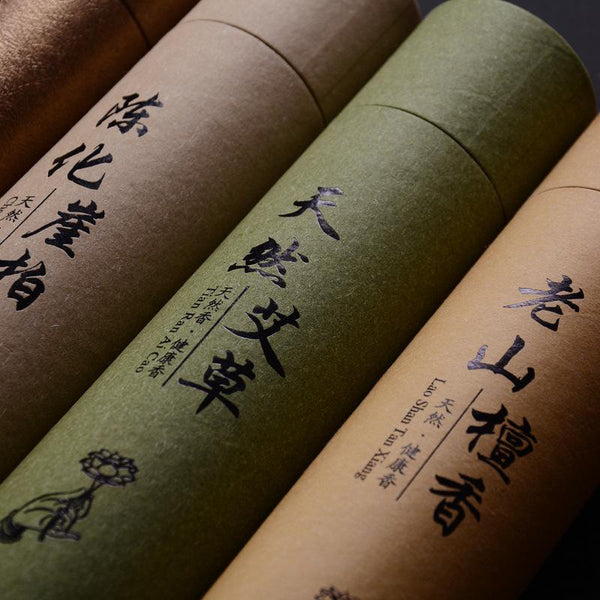 陈化崖柏
天然
天然艾草
天然香·健康香
Tian Ran Ai Cao
老山檀香
天然·健康香
Lao Shan Tan Xiang